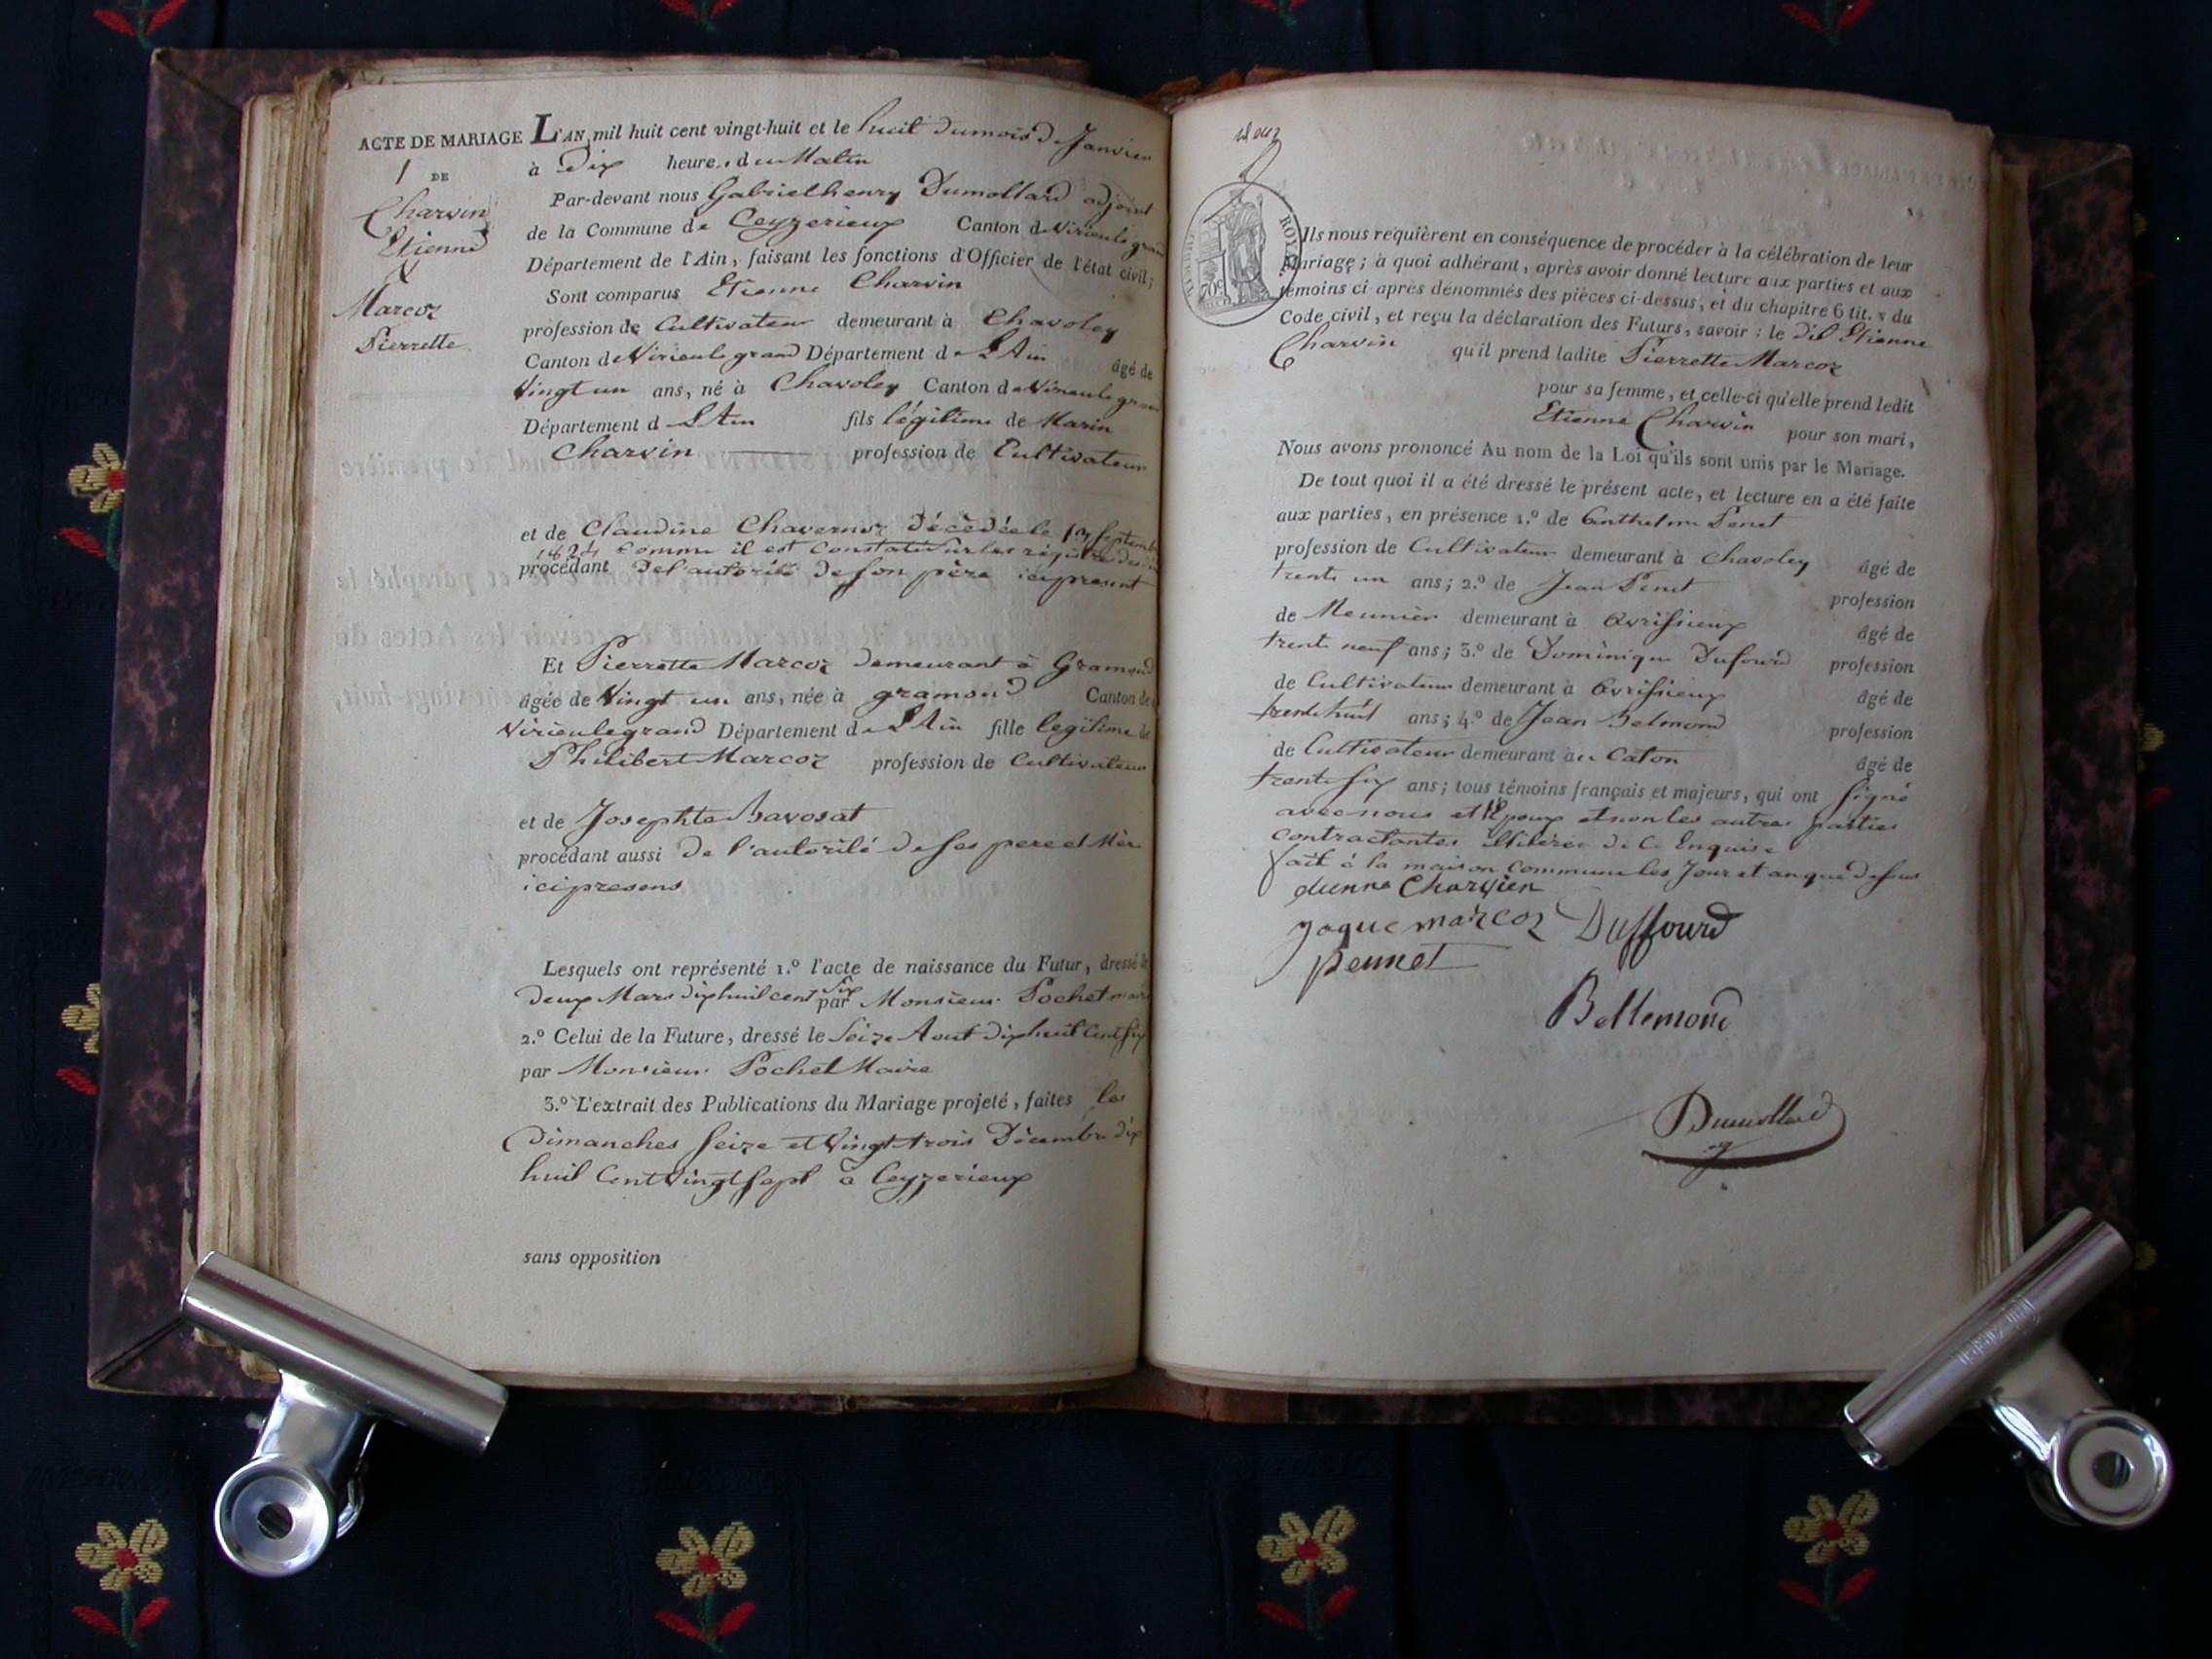 ACTE DE MARIAGE
1 DE
Charvin
Etienne
&
Marcoz
Pierrette
L'AN mil huit cent vingt-huit et le huit du mois de Janvier
à Dix heures du Matin
Par-devant nous Gabriel henry Dumollard adjoint
de la Commune de Ceyzerieux Canton de Virieulegrand
Département de l'Ain, faisant les fonctions d'Officier de l'état civil;
Sont comparus Etienne Charvin
profession de Cultivateur demeurant à Chavoley
Canton de Virieulegrand Département de L'Ain âgé de
Vingt un ans, né à Chavoley Canton de Virieulegrand
Département d L'Ain fils légitime de Marin
Charvin profession de Cultivateur
et de Claudine Chavernoz décédée le 17 Septembre
1824 comme il est constaté sur les régistres
procédant de l'autorité de son père ici present
Et Pierrette Marcoz demeurant à Gramond
âgée de Vingt un ans, née à gramond Canton de
Virieulegrand Département de L'Ain fille legitime de
Philibert Marcoz profession de Cultivateur
et de Josephte Bavosat
procédant aussi de l'autorité de ses pere et Mère
ici presens
Lesquels ont représenté 1.º l'acte de naissance du Futur, dressé le
deux Mars dixhuit cent Six par Monsieur Pochet maire
2.º Celui de la Future, dressé le Seize Aout dixhuit Cent Six
par Monsieur Pochet Maire
3.º L'extrait des Publications du Mariage projeté, faites les
Dimanches Seize et Vingt trois Décembre dix
huit Cent Vingt Sept à Ceyzerieux
sans opposition
TIMBRE ROYAL
70c
Ils nous requièrent en conséquence de procéder à la célébration de leur
Mariage; à quoi adhérant, après avoir donné lecture aux parties et aux
témoins ci-après dénommés des pièces ci-dessus, et du chapitre 6 tit. v du
Code civil, et reçu la déclaration des Futurs, savoir : le dit Etienne
Charvin qu'il prend ladite Pierrette Marcoz
pour sa femme, et celle-ci qu'elle prend ledit
Etienne Charvin pour son mari,
Nous avons prononcé Au nom de la Loi qu'ils sont unis par le Mariage.
De tout quoi il a été dressé le présent acte, et lecture en a été faite
aux parties, en présence 1.º de Anthelme Penet
profession de Cultivateur demeurant à Chavoley âgé de
trente un ans; 2.º de Jean Penet profession
de Meunier demeurant à Avrissieux âgé de
trente neuf ans; 3.º de Dominique Dufourd profession
de Cultivateur demeurant à Avrissieux âgé de
trente huit ans; 4.º de Jean Belmond profession
de Cultivateur demeurant à Caton âgé de
trente six ans; tous témoins français et majeurs, qui ont signé
avec nous et l'Epoux et non les autres parties
contractantes illitérées de ce Enquise
fait à la maison commune les Jour et an que dessus
etienne Charvien
jaque marcoz Duffourd
pennet
Bellemond
Dumollard